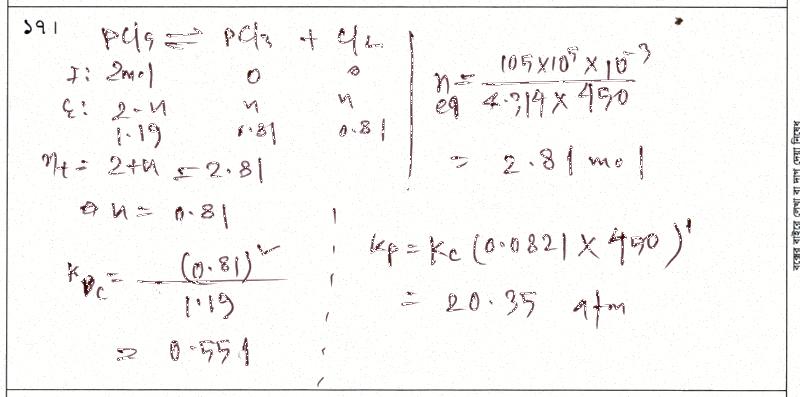 ১৭।
PCl5 ⇌ PCl3 + Cl2
I: 2mol 0 0
E: 2-x x x
1.19 0.81 0.81
nt = 2+x = 2.81
x = 0.81
Kc = (0.81)² / 1.19
= 0.551
n eq = 105×10⁵ × 10⁻³ / 8.314 × 450
= 2.81 mol
Kp = Kc (0.0821 × 450)¹
= 20.35 atm
বক্সের বাইরে লেখা বা দাগ দেয়া নিষেধ